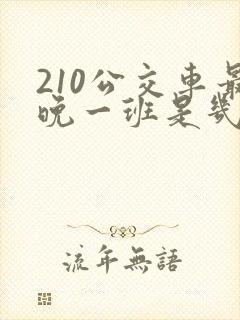 210公交車最
晚一班是幾
流年無語